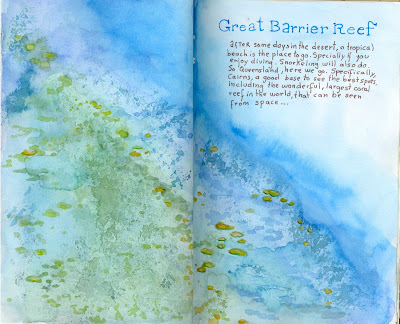 Great Barrier Reef
AFTER some days in the desert, a tropical
beach is the place to go. Specially if you
enjoy diving. Snorkeling will also do.
So Queensland, here we go. Specifically,
Cairns, a good base to see the best spots,
including the wonderful, largest coral
reef in the world, that can be seen
from space...